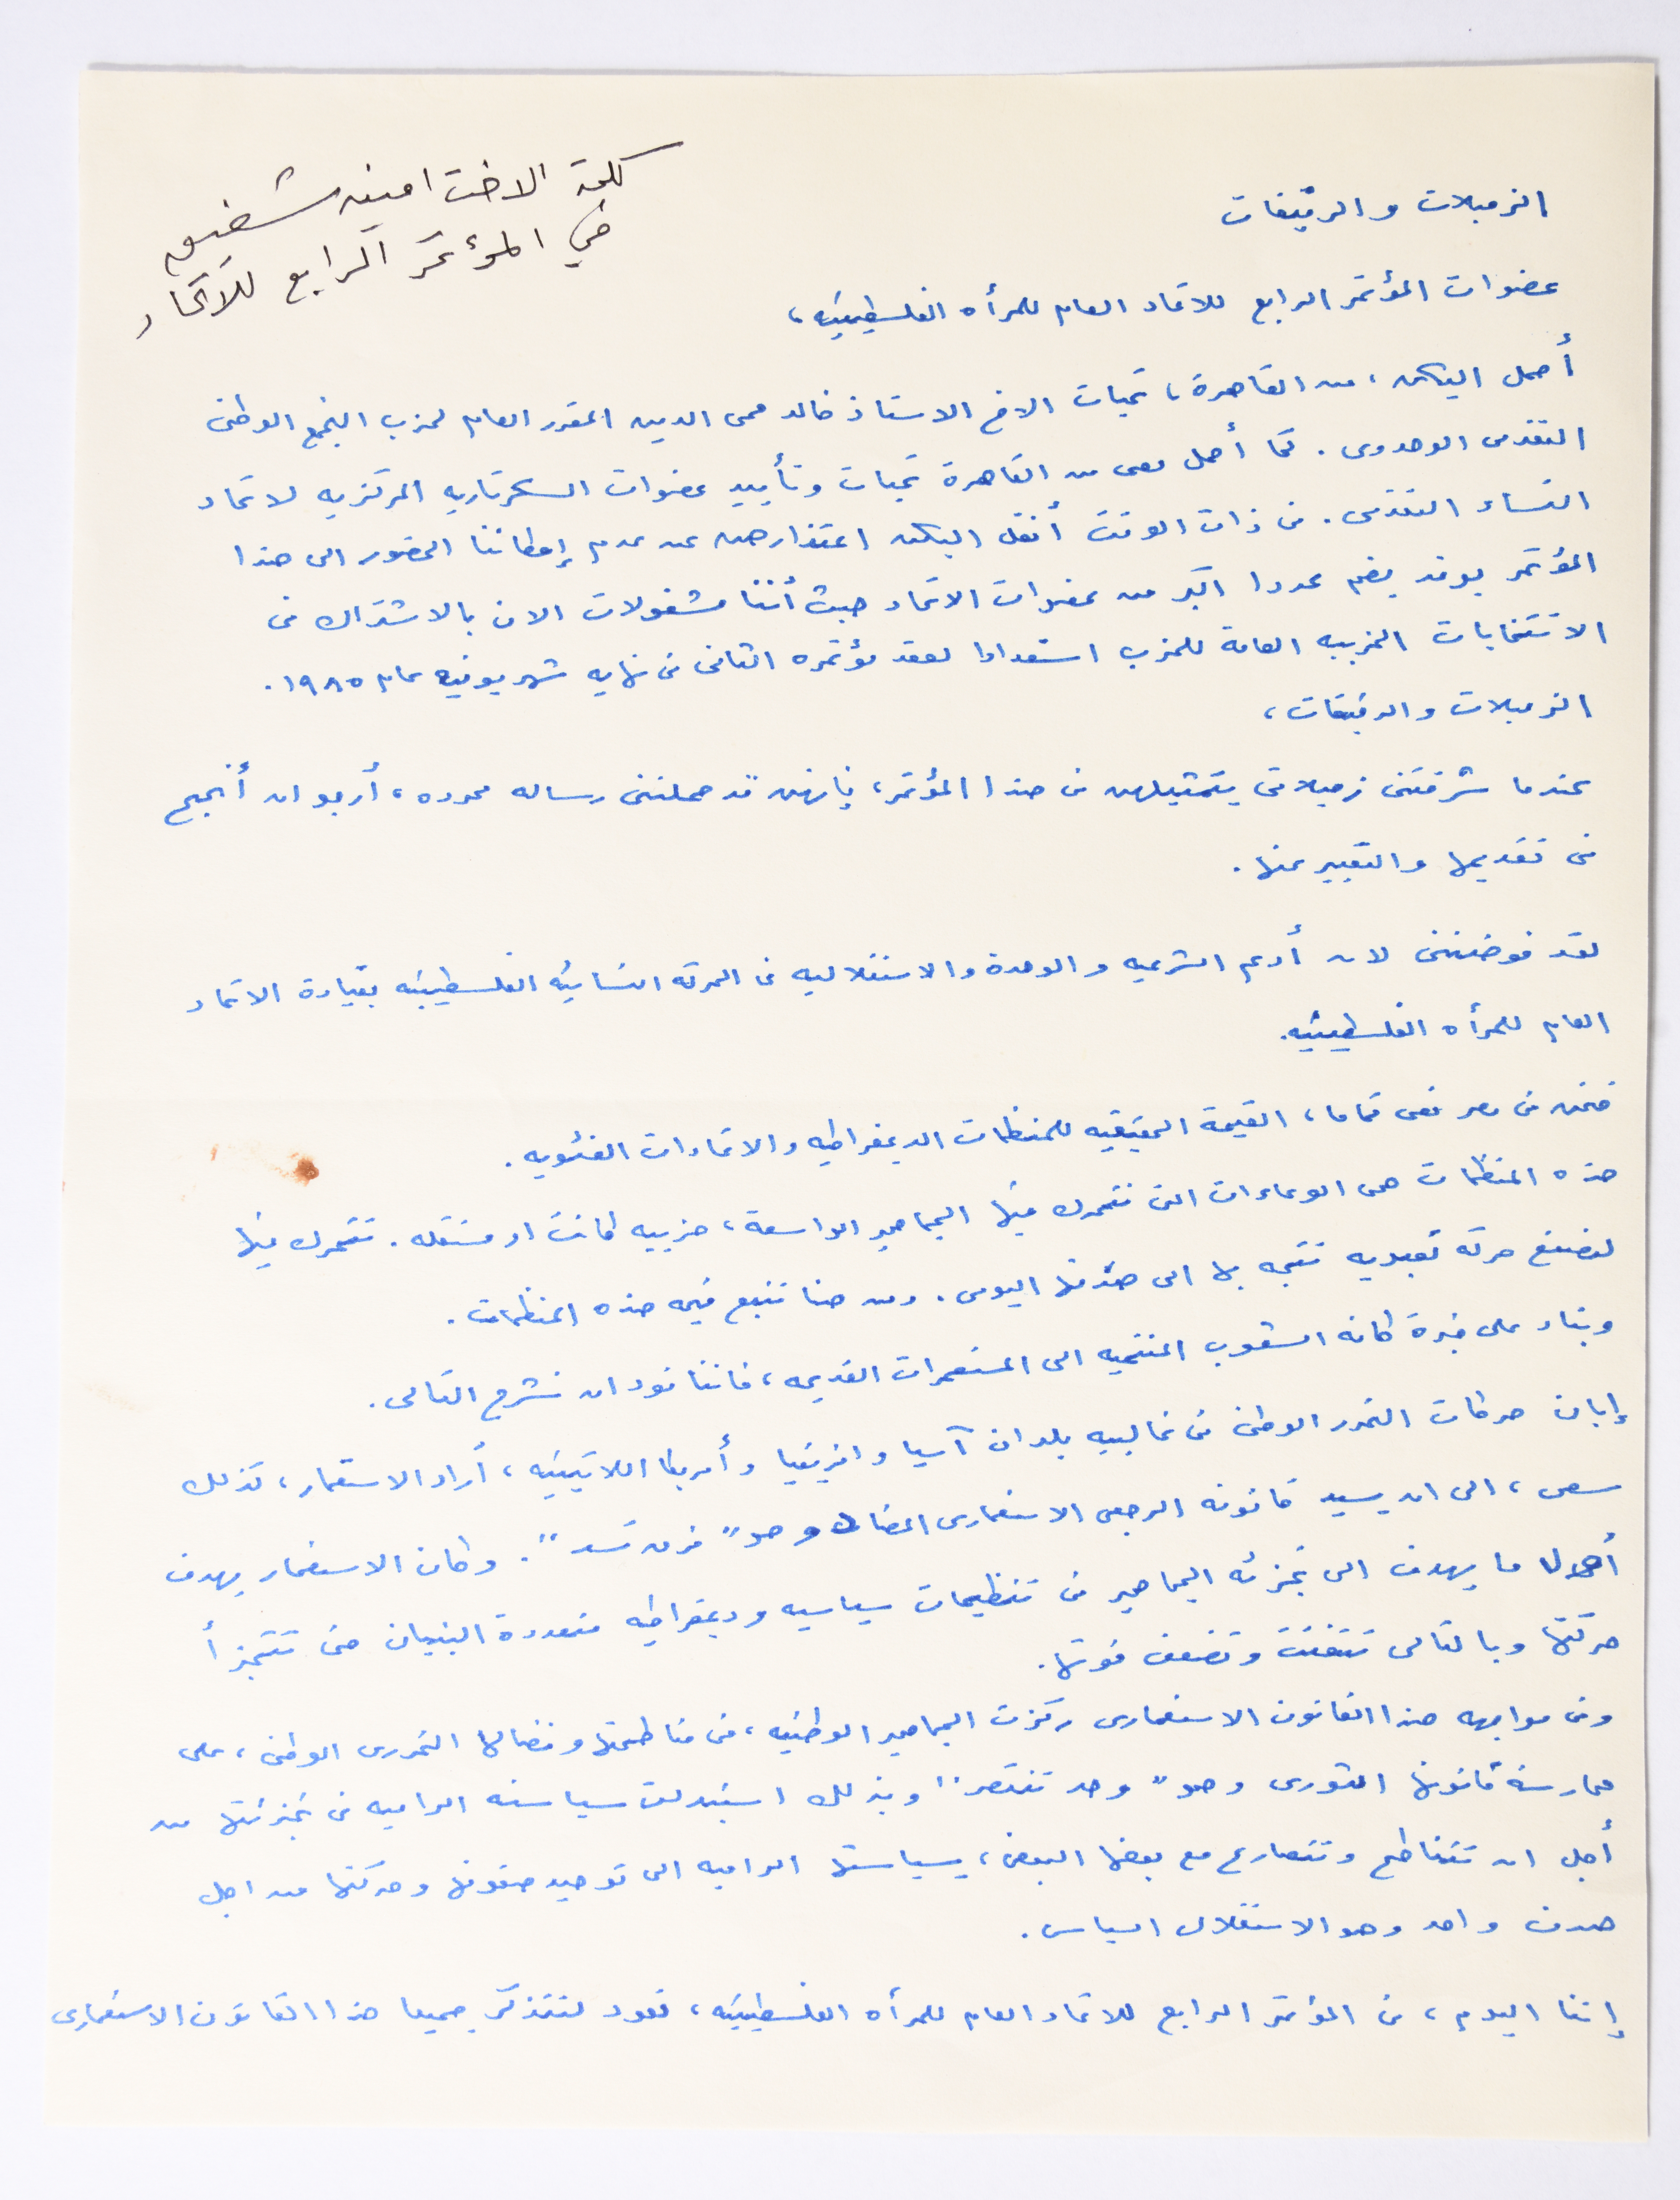 كلمة الاخت امينه شفيق
في المؤتمر الرابع للاتحاد
الزميلات والرفيقات
عضوات المؤتمر الرابع للاتحاد العام للمرأه الفلسطينيه ،
أحمل اليكن ، من القاهرة ، تحيات الاخ الاستاذ خالد محى الدين المقرر العام لحزب التجمع الوطنى
التقدمى الوحدوى . كما أحمل معى من القاهرة تحيات وتأييد عضوات السكرتاريه المركزيه لاتحاد
النساء التقدمى . فى ذات الوقت أنقل اليكن اعتذارهن عن عدم إمكاننا الحضور الى هذا
المؤتمر بوفد يضم عددا اكبر من عضوات الاتحاد حيث أننا مشغولات الان بالاشتراك فى
الانتخابات الحزبيه العامة للحزب استعدادا لعقد مؤتمره الثانى فى نهايه شهر يونيه عام ١٩٨٥ .
الزميلات والرفيقات ،
عندما شرفتنى زميلاتى بتمثيلهن فى هذا المؤتمر ، فإنهن قد حملننى رساله محدده ، أرجو ان أنجح
فى تقديمها والتعبير عنها .
لقد فوضننى لان أدعم الشرعيه والوحدة والاستقلاليه فى الحركه النسائيه الفلسطينيه بقيادة الاتحاد
العام للمرأه الفلسطينيه .
فنحن فى مصر نعى تماما ، القيمة الحقيقيه للمنظمات الديمقراطيه والاتحادات الفئويه .
هذه المنظمات هى الوعاءات التى تتحرك فيها الجماهير الواسعة ، حزبيه كانت او مستقله . تتحرك فيها
لتصنع حركه تعبديه تتجه بها الى هدفها اليومى . ومن هنا تنبع قيمه هذه المنظمات .
وبناء على خبرة كافه الشعوب المنتميه الى المستعمرات القديمه ، فاننا نود ان نشرح التالى .
إبان حركات التحرر الوطنى فى غالبيه بلدان آسيا وافريقيا وأمريكا اللاتينيه ، أراد الاستعمار ، كذلك
سعى ، الى ان يسيد قانونه الرجعى الاستعمارى المضاد وهو " فرق تسد " . وكان الاستعمار يهدف
أول ما يهدف الى تجزئه الجماهير فى تنظيمات سياسيه وديمقراطيه متعددة البنيان حتى تتجزأ
حركتها وبالتالى تتفتت وتضعف قوتها .
وفى مواجهه هذا القانون الاستعمارى ركزت الجماهير الوطنيه ، فى مناطحتها ونضالها التحررى الوطنى ، على
ممارسة قانونها الثورى وهو " وحد تنتصر " وبذلك استبدلت سياسته الراميه فى تجزئتها من
أجل ان تتناطح وتتصارع مع بعضها البعض ، بسياستها الراميه الى توحيد صفوفها وحركتها من اجل
هدف واحد وهو الاستقلال السياسى .
إننا اليوم ، فى المؤتمر الرابع للاتحاد العام للمرأه الفلسطينيه ، نعود لنتذكر جميعا هذا القانون الاستعمارى